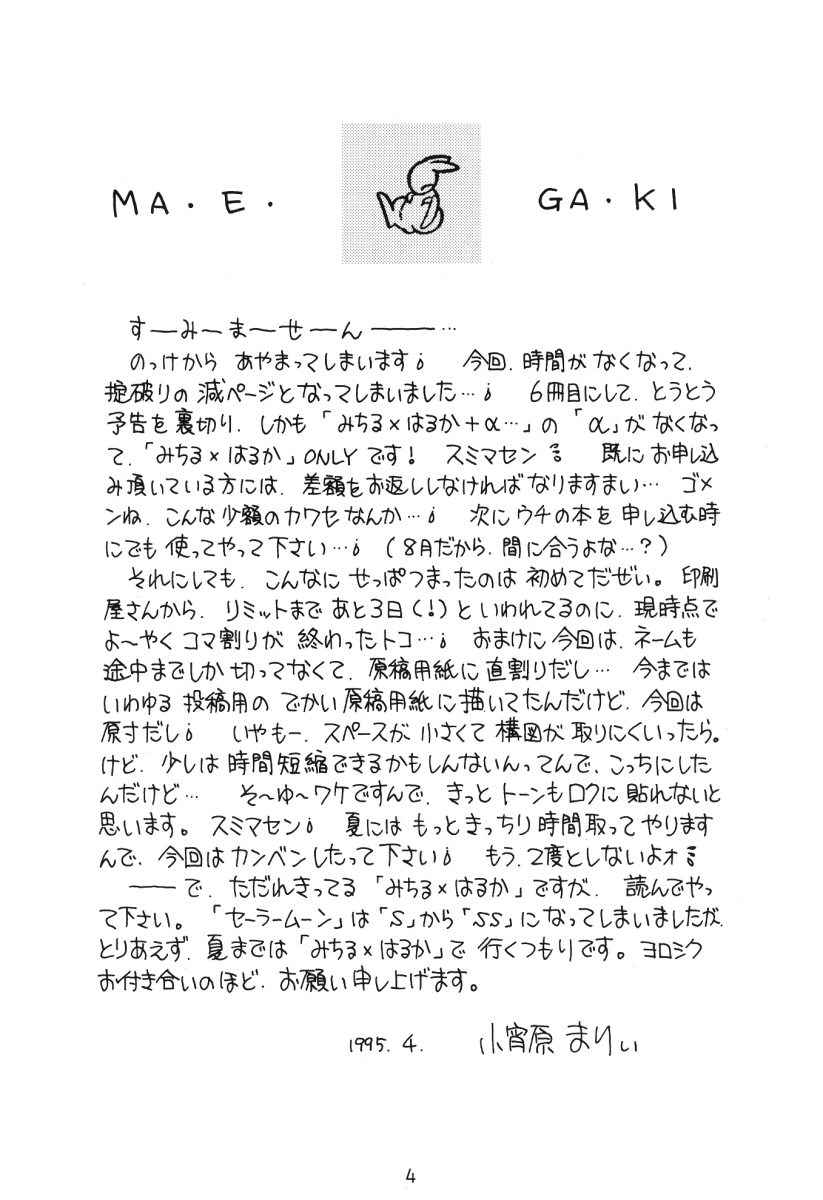 MA・E・ GA・KI
すーみーまーせーん———…
のっけから あやまってしまいます； 今回、時間が なくなって、
掟破りの 減ページと なってしまいました…； 6冊目にして、とうとう
予告を 裏切り、しかも「みちる×はるか+α…」の「α」が なくなっ
て、「みちる×はるか」ONLYです！ スミマセン；； 既に お申し込
み頂いている方には、差額を お返ししなければ なりますまい… ゴメ
ンね、こんな少額のカワセなんか…； 次に ウチの本を 申し込む時
にでも 使ってやって下さい…；（8月だから、間に合うよな…？）
それにしても、こんなに せっぱつまったのは 初めてだぜい。印刷
屋さんから、リミットまで あと3日（！）と いわれてるのに、現時点で
よ～やく コマ割りが 終わったトコ…； おまけに 今回は、ネームも
途中までしか 切ってなくて、原稿用紙に 直割りだし… 今までは
いわゆる 投稿用の でかい 原稿用紙に 描いてたんだけど、今回は
原寸だし； いやもー、スペースが 小さくて 構図が 取りにくいったら。
けど、少しは 時間短縮できるかもしんないんってんで、こっちにした
んだけど… そ～ゆ～ワケですんで、きっと トーンも ロクに 貼れないと
思います。スミマセン； 夏には もっと きっちり 時間取って やります
んで、今回は カンベンしたって 下さい； もう、2度としないよォ；；
——で、ただれきってる「みちる×はるか」ですが、 読んでやっ
て下さい。「セーラームーン」は「S」から「SS」に なってしまいましたが、
とりあえず、夏までは「みちる×はるか」で 行くつもりです。ヨロシク
お付き合いのほど、お願い 申し上げます。
1995. 4. 小宵原 まりい
4